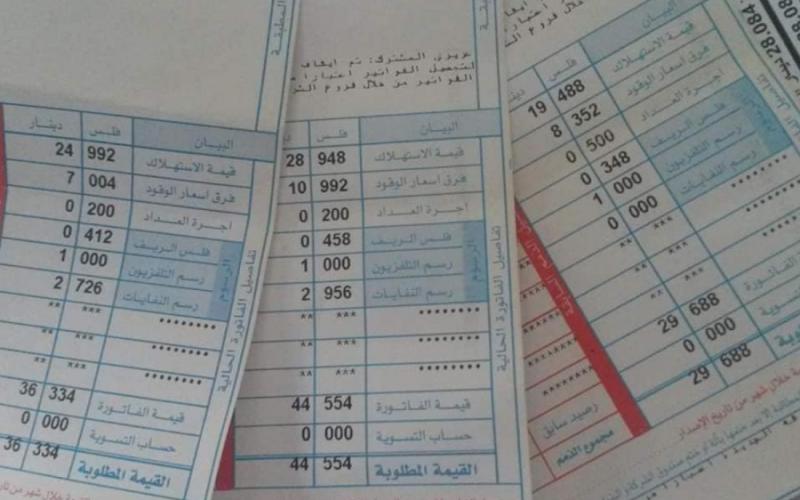 البيان فلس دينار
قيمة الاستهلاك 992 24
فرق أسعار الوقود 004 7
اجرة العداد 200 0
فلس الريف 412 0
رسم التلفزيون 000 1
رسم النفايات 726 2
******** *** **
******** *** **
******** *** **
قيمة الفاتورة 334 36
حساب التسوية 000 0
القيمة المطلوبة 334 36
الرسوم
تفاصيل الفاتورة الحالية
عزيزي المشترك: تم ايقاف
لتحصيل الفواتير اعتبارا م
الفواتير من خلال فروع الشر
البيان فلس
قيمة الاستهلاك 948 28
فرق أسعار الوقود 992 10
اجرة العداد 200 0
فلس الريف 458 0
رسم التلفزيون 000 1
رسم النفايات 956 2
******** *** **
******** *** **
******** *** **
قيمة الفاتورة 554 44
حساب التسوية 000 0
القيمة المطلوبة 554 44
الرسوم
تفاصيل الفاتورة الحالية
28.084
فلس دينار
قيمة الاستهلاك 488 19
فرق أسعار الوقود 352 8
اجرة العداد 500 0
فلس الريف 348 0
رسم التلفزيون 000 1
رسم النفايات 000 0
******** *** **
******** *** **
******** *** **
الفاتورة 688 29
تسوية 000 0
688 29
رصيد سابق
مجموع الذمم
خلال شهر من تاريخ الإصدار